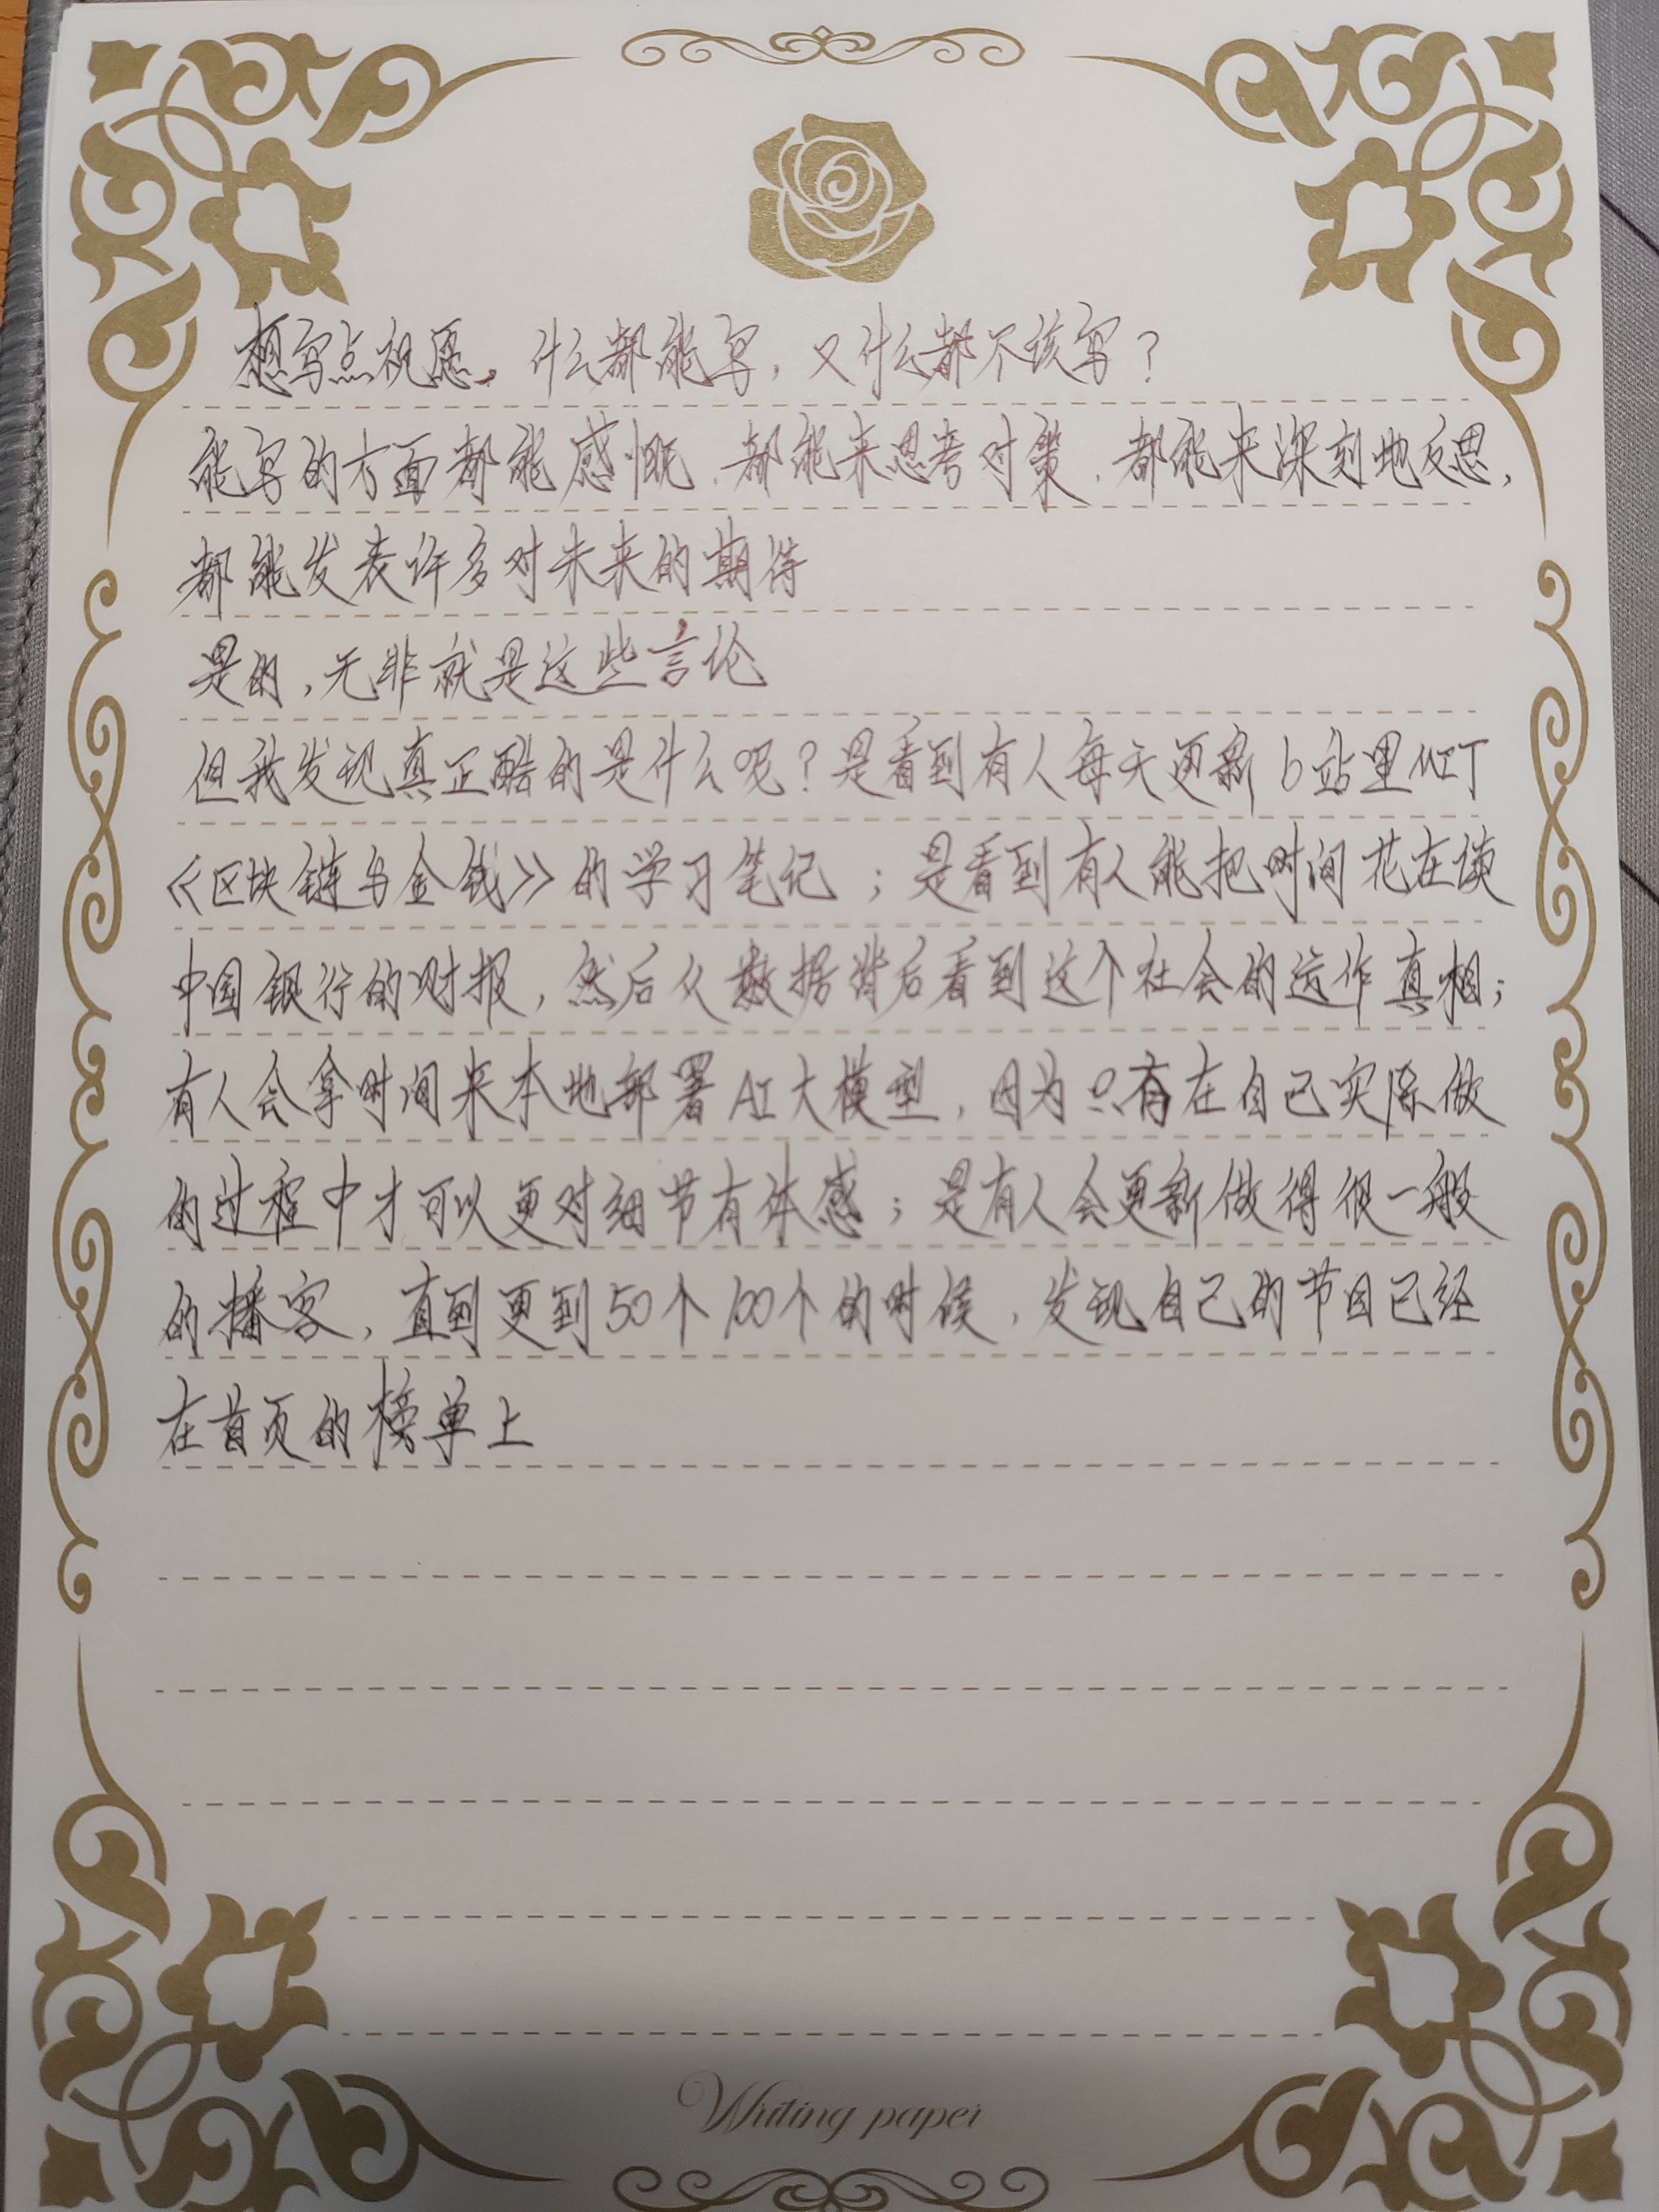 想写点祝愿。什么都能写，又什么都不该写？
能写的方面都能感慨，都能来思考对策，都能来深刻地反思，
都能发表许多对未来的期待
是的，无非就是这些言论
但我发现真正酷的是什么呢？是看到有人每天更新b站里MIT
《区块链与金钱》的学习笔记；是看到有人能把时间花在谈
中国银行的财报，然后从数据背后看到这个社会的运作真相；
有人会拿时间来本地部署AI大模型，因为只有在自己实际做
的过程中才可以更对细节有体感；是有人会更新做得很一般
的播客，直到更到50个100个的时候，发现自己的节目已经
在首页的榜单上
Writing paper